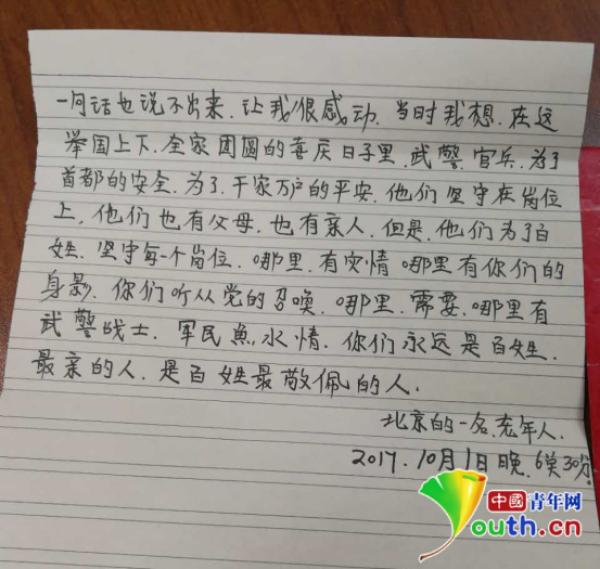 一句话也说不出来.让我很感动.当时我想.在这
举国上下.全家团圆的喜庆日子里.武警官兵.为了
首都的安全.为了.千家万户的平安.他们坚守在岗位
上.他们也有父母.也有亲人.但是.他们为了百
姓.坚守每一个岗位.哪里.有灾情哪里有你们的
身影.你们听从党的召唤.哪里.需要.哪里有
武警战士.军民鱼水情.你们永远是百姓.
最亲的人.是百姓最敬佩的人.
北京的一名.老年人.
2017.10月1日晚.6点30分.
中國青年网
youth.cn